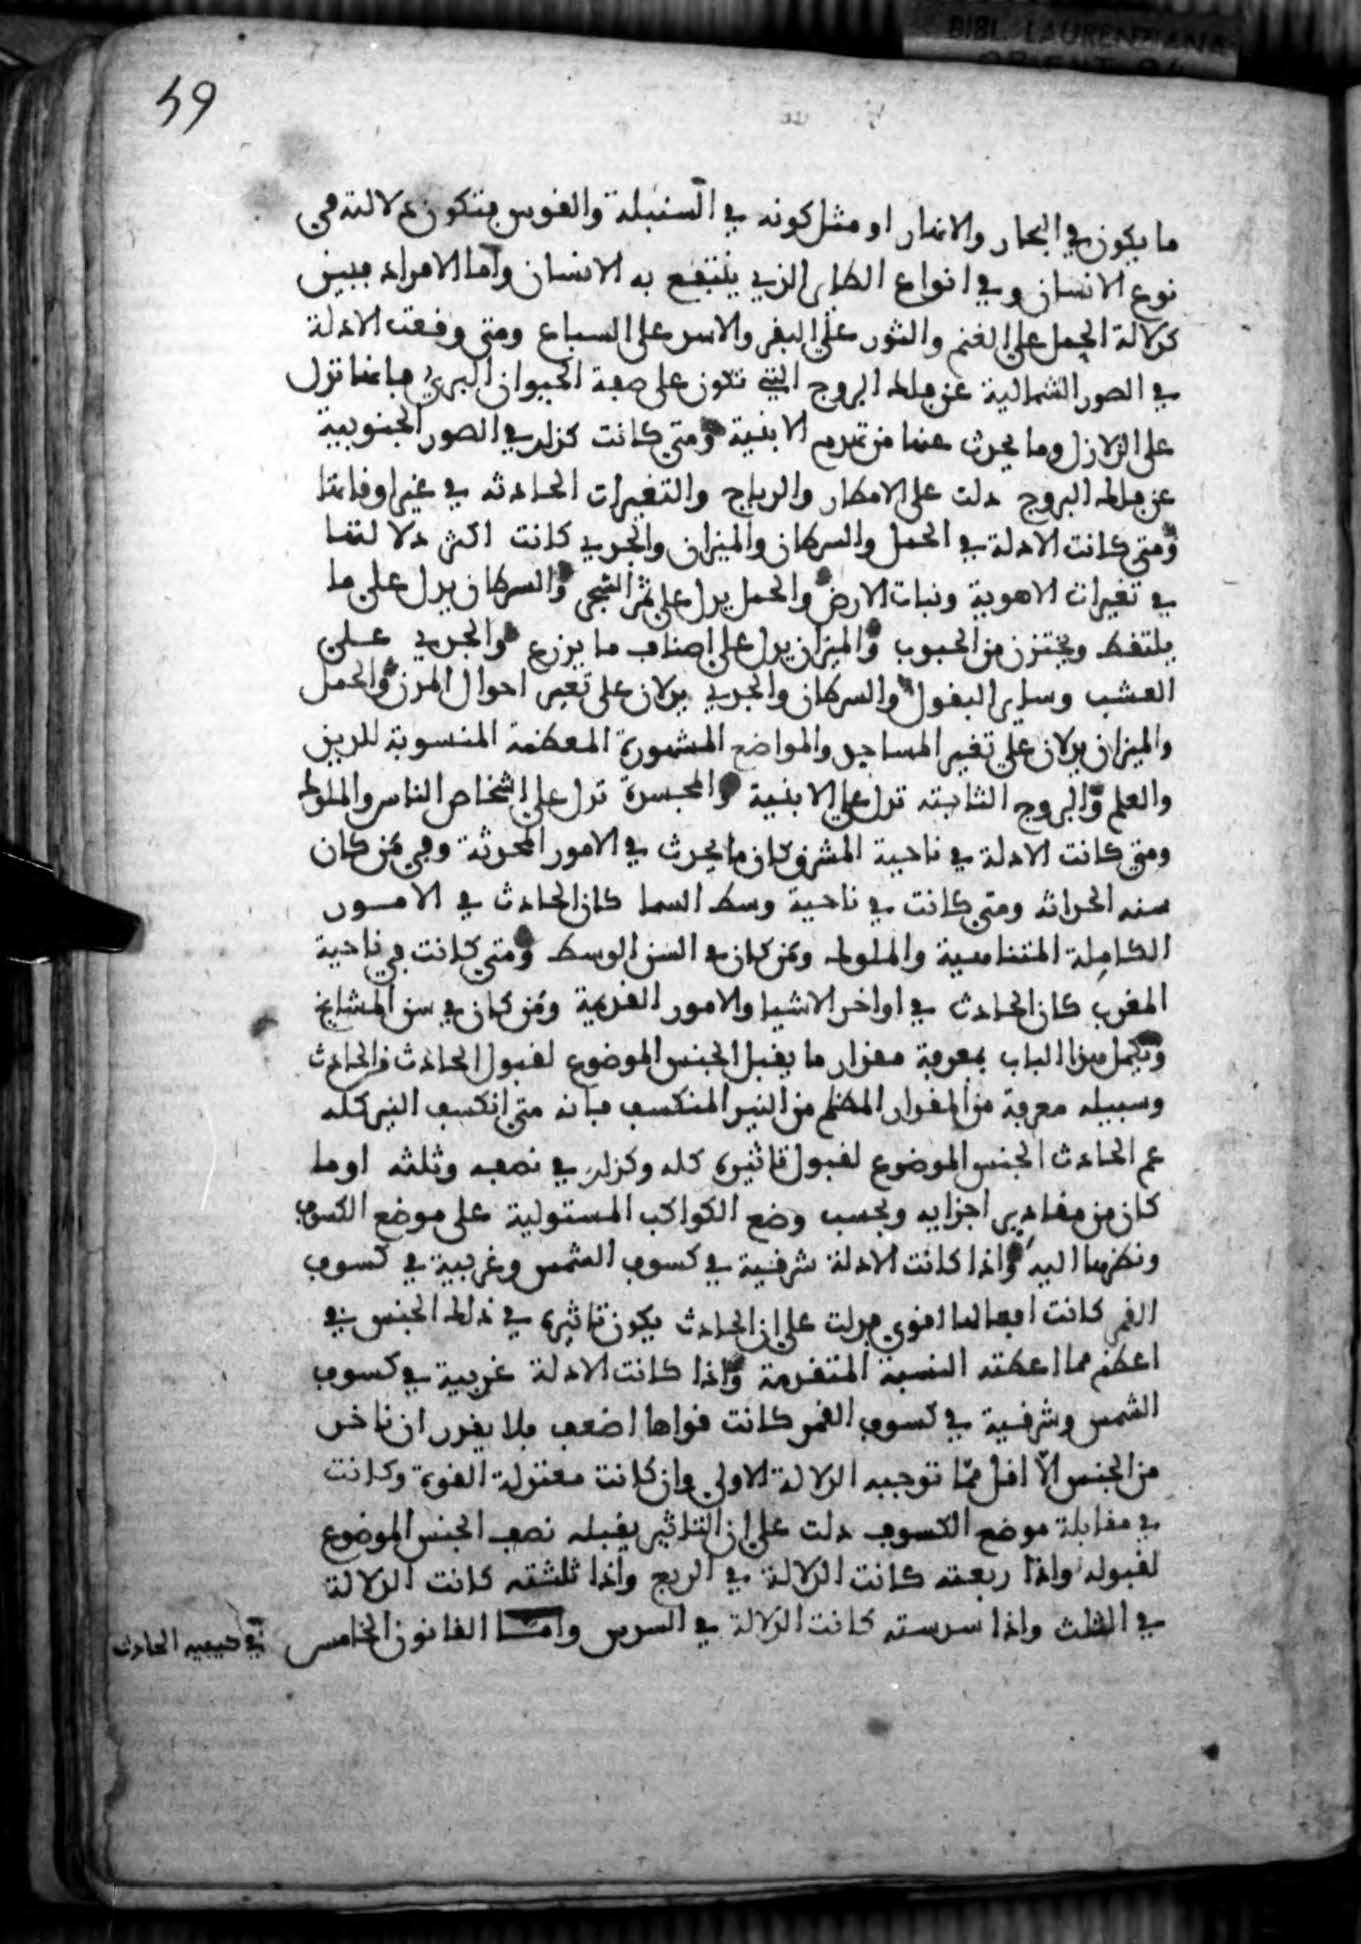 BIBL. LAURENZIANA
ORIENT.
59
ما يكون في البحار والانهار او مثل كونه في السنبلة والقوس فتكون دلالته في
نوع الانسان وفي انواع الطاير الذي ينتفع به الانسان واما الافراد فبين
كدلالة الحمل على الغنم والثور على البقر والاسد على السباع ومتى وقعت الادلة
في الصور الشمالية عن فلك البروج التي تكون على صفة الحيوان البري فانها تدل
على الزلازل وما يحدث عنها من تهدم الابنية ومتى كانت كذلك في الصور الجنوبية
عن فلك البروج دلت على الامطار والرياح والتغيرات الحادثه في غير اوقاتها
ومتى كانت الادلة في الحمل والسرطان والميزان والجدي كانت اكثر دلالتها
في تغيرات الاهوية ونبات الارض والحمل يدل على ثمر الشجر والسرطان يدل على ما
يلتقط ويختزن من الحبوب والميزان يدل على اصناف ما يزرع والجدي على
العشب وساير البقول والسرطان والجدي يدلان على تغير احوال المدن والحمل
والميزان يدلان على تغير المساجد والمواضع المشهورة المعظمة المنسوبة للدين
والعلم والبروج الثابته تدل على الابنية والمجسدة تدل على اشخاص الناس والملوك
ومتى كانت الادلة في ناحية المشرق كان ما يحدث في الامور المحدثة وفي من كان
سنه الحداثه ومتى كانت في ناحية وسط السما كان الحادث في الامور
الكاملة المتناهية والملوك ومن كان في السن الوسط ومتى كانت في ناحية
المغرب كان الحادث في اواخر الاشيا والامور القديمة ومن كان في سن المشايخ
ويكمل هذا الباب بمعرفة مقدار ما يقبل الجنس الموضوع لقبول الحادث من الحادث
وسبيله معرفة من المقدار المظلم من النير المنكسف فبانه متى انكسف النير كله
عم الحادث الجنس الموضوع لقبول تاثيره كله وكذلك في نصفه وثلثه او ما
كان من مقادير اجزايه وبحسب وضع الكواكب المستولية على موضع الكسوف
ونظرها اليه واذا كانت الادلة شرقية في كسوف الشمس وغربية في كسوف
القمر كانت افعالها اقوى فدلت على ان الحادث يكون تاثيره في ذلك الجنس في
اعظم مما اعطته النسبة المتقدمة واذا كانت الادلة غربية في كسوف
الشمس وشرقية في كسوف القمر كانت قواها اضعف فلا يقدر ان ناخذ
من الجنس الا اقل مما توجبه الدلالة الاولى وان كانت معتدلة القوة وكانت
في مقابلة موضع الكسوف دلت على ان التاثير يقبله نصف الجنس الموضوع
لقبوله واذا ربعته كانت الدلالة في الربع واذا ثلثته كانت الدلالة
في الثلث واذا سدسته كانت الدلالة في السدس واما القانون الخامس في كيفيه الحادث